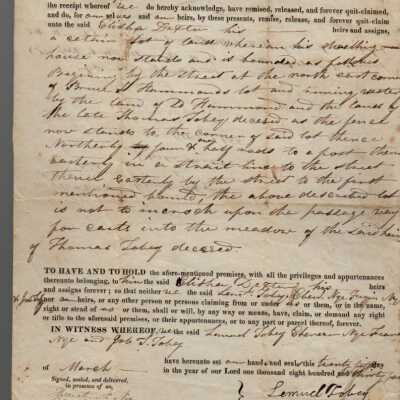 the receipt whereof we do hereby acknowledge, have remised, released, and forever quit-claimed
and do, for ourselves and our heirs, by these presents, remise, release, and forever quit-claim
unto the said Elisha Dexter his heirs and assigns,
a certain lot of land whereon his dwelling
house now stands and is bounded as follows
Begining by the street at the north east corner
of Hammonds lot and runing
by the land of D Hammond and the land of
the late Thomas Tobey deceased as the fence
now stands to the corner of said lot thence
Northerly four & half rods to a post thence
Easterly in a strait line to the street
thence Easterly by the street to the first
mentioned bound, the above described lot
is not to incroach upon the passage way
for carts into the meadow of the
of Thomas Tobey deceased
TO HAVE AND TO HOLD the afore-mentioned premises, with all the privileges and appurtenances
thereunto belonging, to him the said Elisha Dexter his heirs
and assigns forever; so that neither we the said Lemuel Tobey Ebenr Nye
nor our heirs, or any other person or persons claiming from or under us or them, or in the name,
right or stead of us or them, shall or will, by any way or means, have, claim, or demand any right
or title to the aforesaid premises, or their appurtenances, or to any part or parcel thereof, forever.
IN WITNESS WHEREOF, we the said Lemuel Tobey Ebener Nye
Nye and Job T. Tobey
have hereunto set our hand and seals, this twenty day
of March in the year of our Lord one thousand eight hundred and thirty
Signed, sealed, and delivered,
in presence of us,
Lemuel Tobey